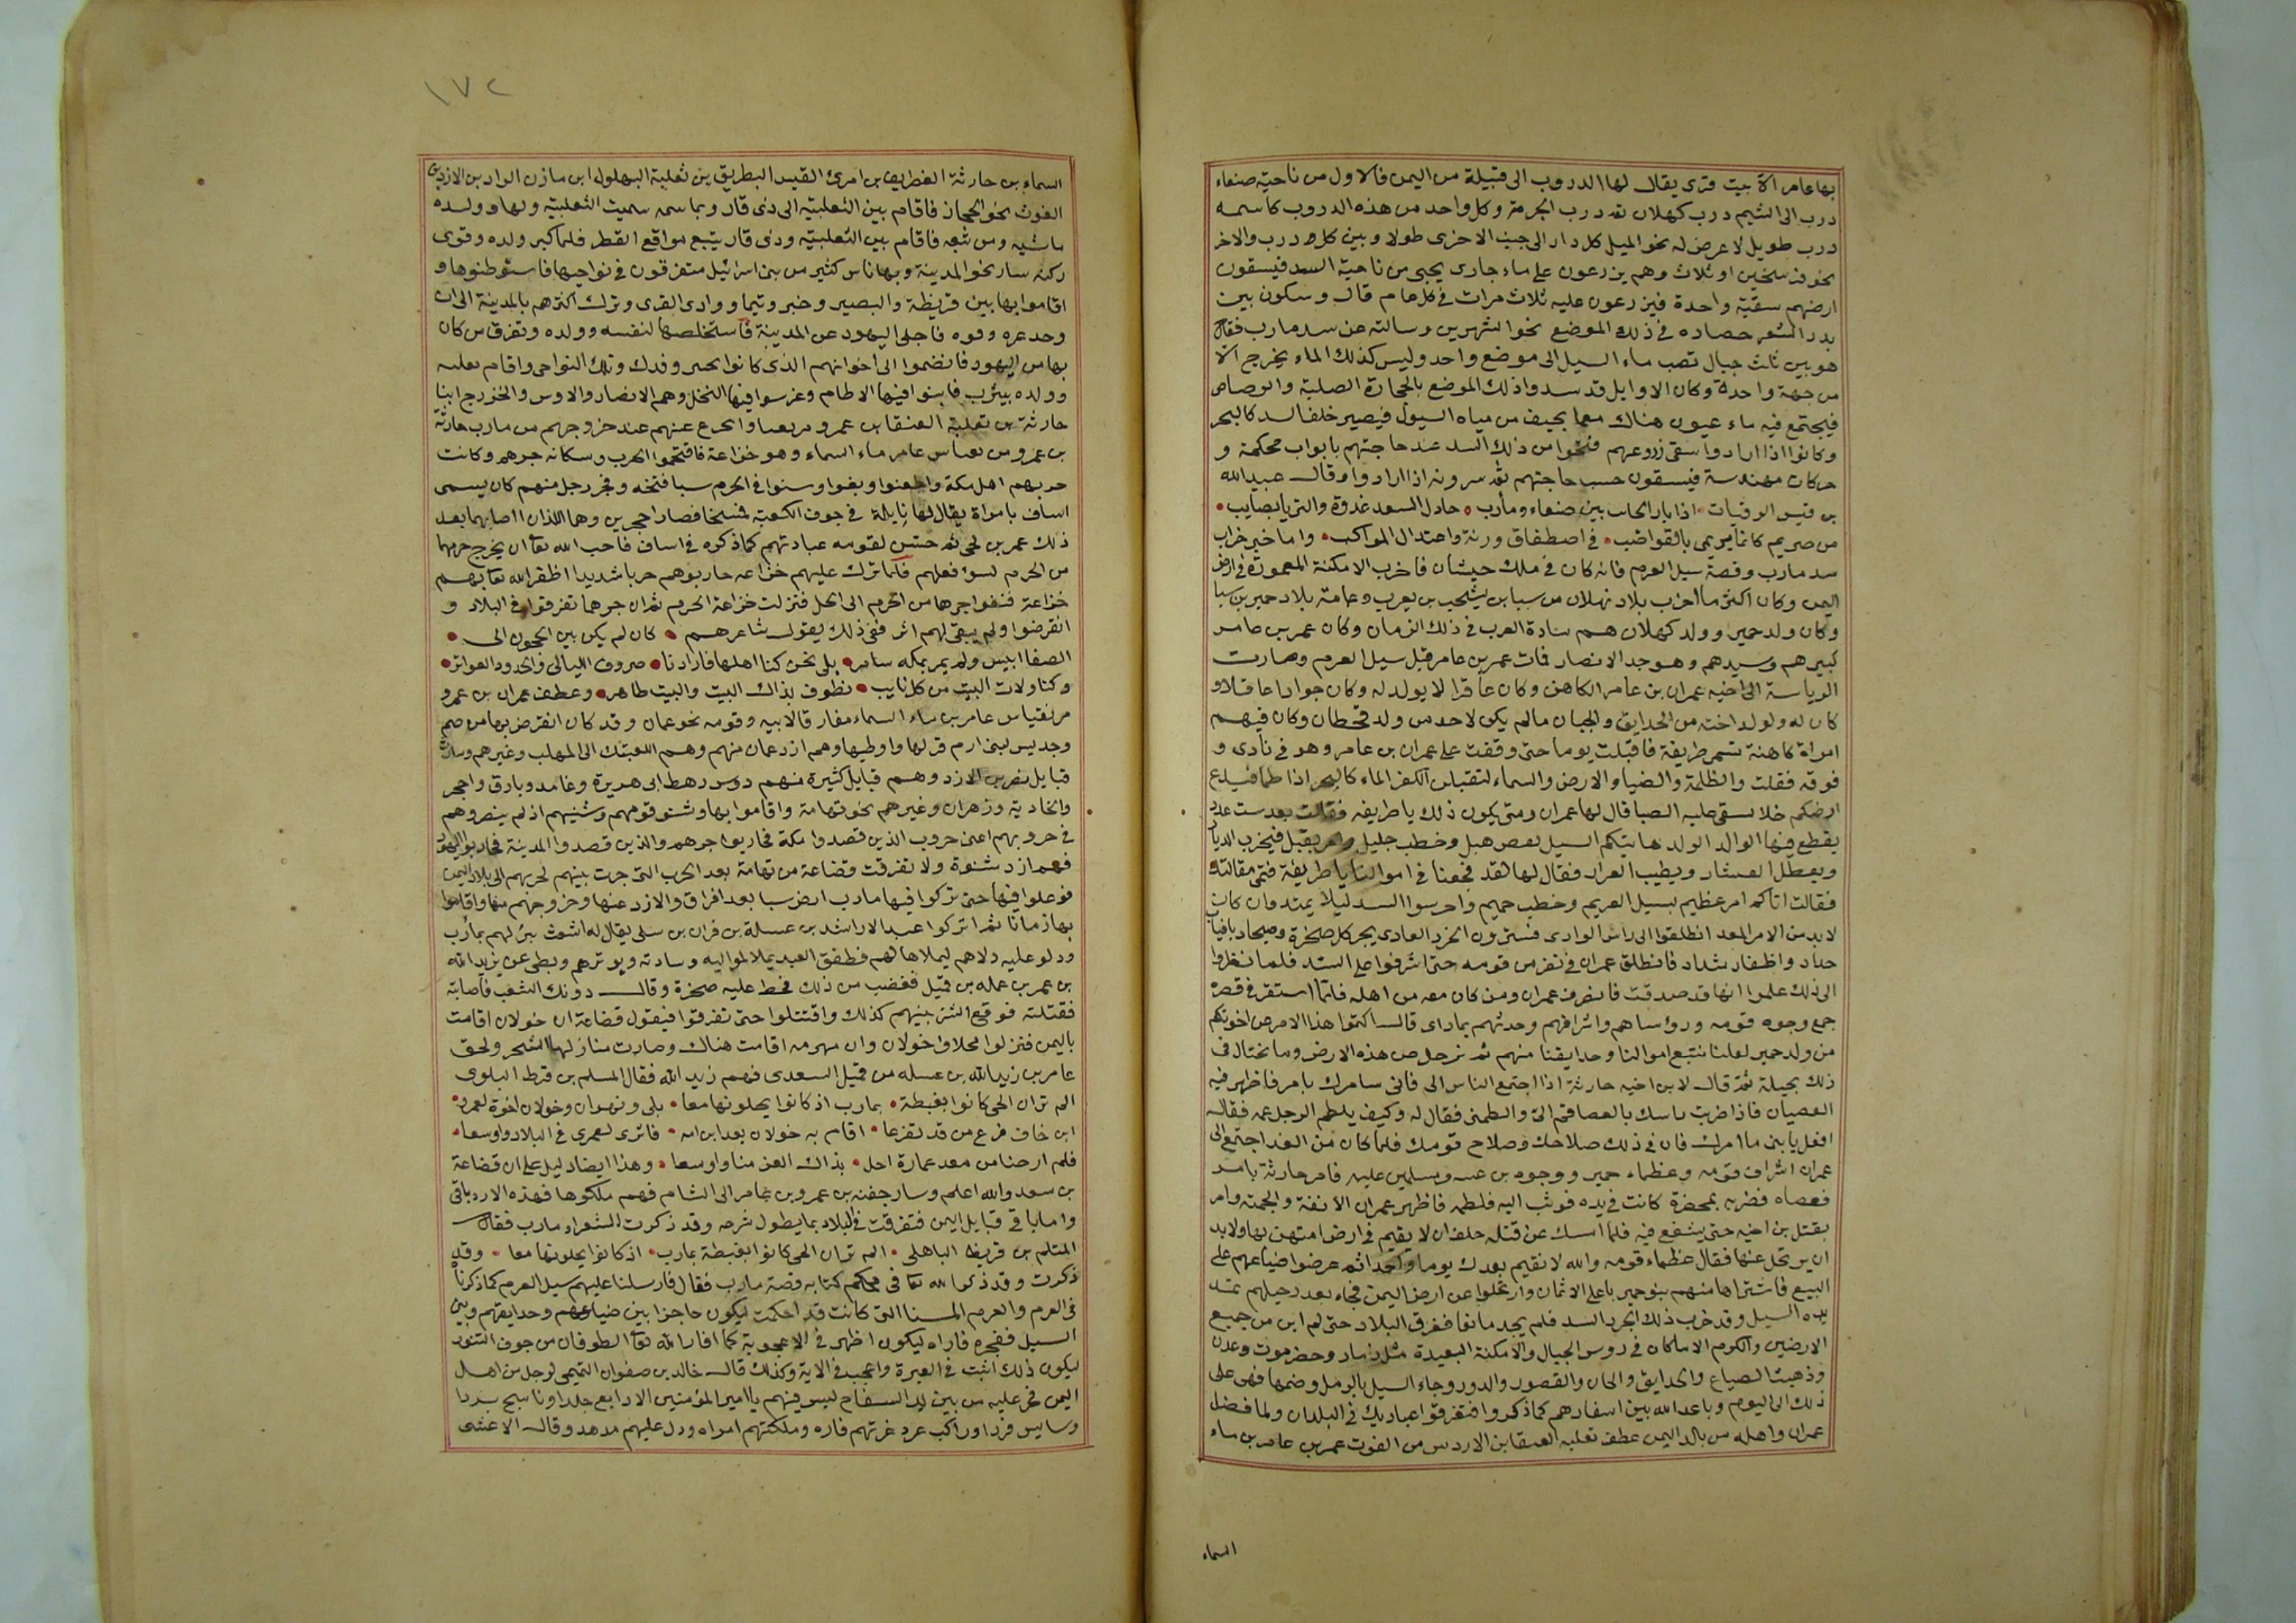 بها عامر الا بيت قرى يقال لها الدروب الى قبيلة من اليمن فالاول من ناحية صنعاء
درب الى الشيم درب كهلان ثم درب الحرمة وكل واحد من هذه الدروب كاسمه
درب طويل لا عرض له نحو الميل كل دار الى جنب الاخرى طولا وبين كل درب والاخر
نحو فرسخين او ثلاث وهم يزرعون على ماء جارى يجى من ناحية السد فيسقون
ارضهم سقية واحدة فيزرعون عليه ثلاث مرات في كل عام قال وسكون بين
بدر الشعر حصاده في ذلك الموضع نحو الشهرين وسالته عن سد مارب فقال
هو بين ثلث جبال تصب ماء السيل الى موضع واحد وليس كذلك الماء يخرج الا
من جهة واحدة وكان الاوايل قد سدوا ذلك الموضع بالحجارة الصلبة والرصاص
فيجتمع فيه ماء عيون هناك مع ما يجيف من مياه السيول فيصير خلف السد كالبحر
وكانوا اذا ارادوا سقى زروعهم فتحوا من ذلك السد عند حاجتهم بابواب محكمة و
حركات مهندسة فيسقون حسب حاجتهم ثم سرونه اذا ارادوا وقال عبيد الله
بن قيس الرقيات
من صريم كانما يرمى بالقواضب في اصطفاق ورنة واعتدال المواكب واما خبر خراب
سد مارب وقصة سيل العرم فانه كان في ملك حبشان فاخرب الامكنة المعمورة في ارض
اليمن وكان اكثر ما اخرب بلاد كهلان من سبا بن يشجب بن يعرب وعامة بلاد حمير بن سبا
وكان ولد حمير وولد كهلان هم سادة العرب في ذلك الزمان وكان عمر بن عامر
كبيرهم وسيدهم وهو جد الانصار فمات عمر بن عامر قبل سيل العرم وصارت
الرياسة الى اخيه عمران بن عامر الكاهن وكان عاقرا لا يولد له وكان جوادا عاقلا و
كان له ولولد اخته من الحدايق والجبان مالم يكن لاحد من ولد قحطان وكان فيهم
امراة كاهنة تسمى طريفة فاقبلت يوما حتى وقفت على عمران بن عامر وهو في نادى و
قومه فقلت والظلمة والضيا والارض والسماء لتقبلن اليكم الماء كالبحر اذا طما فيدع
ارضكم خلا تسقى عليه الصبا قال لها عمران ومتى يكون ذلك يا طريفه فقالت بعد ست عدد
يقطع فيها الوالد الولد وخطب جليل فيخرب الديار
ويعطل العشار ويطيب العرار فقال لها لقد فجعتنا في اموالنا يا طريفة فبينى مقالتك
فقالت اتاكم امر عظيم بسيل العريم وخطب جسيم واحرسوا السد ليلا يمتد وان كان
لا بد من الامر المعد انطلقوا الى راس الوادى فسترون الجرذ العادى يجر كل صخرة وصيخاد بانياب
حداد واظفار شداد فانطلق عمران في نفر من قومه حتى اشرفوا على السد فلما نظروا
الى ذلك علموا انها قد صدقت فانصرف عمران ومن كان معه من اهله فلما استقر في قصره
جمع وجوه قومه ورؤساهم واشرافهم وحدثهم بماراى قال اكتموا هذا الامر عن اخوتكم
من ولد حمير لعلنا نتبع اموالنا وحدايقنا منهم ثم نرحل من هذه الارض وما نحتال في
ذلك بحيلة ثم قال لابن اخيه حارثة اذا اجتمع الناس الى فانى سامرك بامر فاظهر فيه
العصيان فاذا ضربت راسك بالعصا فقم الى والطمنى فقال له وكيف يلطم الرجل عمه فقال
افعل يا بنى ما امرك فان في ذلك صلاحك وصلاح قومك فلما كان من الغد اجتمع الى
عمران اشراف قومه وعظماء حمير ووجوه مسلمين عليه فامر حارثة بامر
فعصاه فضربه بمخصرة كانت في يده فوثب اليه فلطمه فاظهر عمران الانفة والحمية وامر
بقتل بن اخيه حتى يشفع فيه فلما امسك عن قتله حلف ان لا يقيم في ارض امتهن بها ولابد
ان يرتحل عنها فقال عظماء قومه والله لا نقيم بعدك يوما واحدا ثم عرضوا ضياعهم على
البيع فاشتراها منهم بنو حمير باعلى الاثمان وارتحلوا عن ارض اليمن فجاء بعد رحيلهم
السيل وقد خرب ذلك الجرذ السد فلم يجد مانعا فغرق البلاد حتى لم من جميع
الارضين والكروم الا ما كان في روس الجبال والامكنة البعيدة مثل ذمار وحضرموت وعدن
وذهبت الضياع والحدايق والجنان والقصور والدور وجاء السيل بالرمل وضمها فهى على
ذلك الى اليوم وباعد الله بين اسفارهم كما ذكروا فتفرقوا عباديك في البلدان ولما فصل
عمران واهله من بلاد اليمن عطف ثعلبه العنقا بن الازد من الغوث عمر بن عامر بن ماء
السماء
١٧٢
السماء بن حارثة الغطريف بن امرئ القيس البطريق بن ثعلبة البهلول ابن مازن الراد بن الازد بن
الغوث نحو الحجاز فاقام بين الثعلبية الى ذى قار وباسمه سميت الثعلبية ولها وولده
ماشيه ومن تبعه فاقام بين الثعلبية وذى قار يتبع مواقع القطر فلما كبر ولده وقوى
ركنه سار نحو المدينة وبها ناس كثير من بنى اسرائيل متفرقون في نواحيها فاستوطنوها و
اقاموا بها بين قريظة والنضير وخيبر وتيما ووادى القرى وترك اكثرهم بالمدينة الى ان
وجد عزه وقوه فاجلى اليهود عن المدينة فاستخلصها لنفسه وولده وتفرق من كان
بها من اليهود فانضموا الى اخوانهم الذى كانوا بخيبر وفدك وتلك النواحى واقام ثعلبه
وولده بيثرب فابتنوا فيها الاطام وغرسوا فيها النخل وهم الانصار والاوس والخزرج ابنا
حارثة بن ثعلبة العنقا بن عمرو مزيقيا وانخزع عنهم عند خروجهم من مارب حارثة
بن عمرو من عامر ماء السماء وهو خزاعة فافتتحوا الحرب وسكانه جرهم وكانت
جرهم اهل مكة وبغوا وسنوا في الحرم سنا قبيحه وفجر رجل منهم كان يسمى
اساف بامراة يقال لها نايلة في جوف الكعبة فمسخا فصارا حجرين وهما اللذان اصابهما بعد
ذلك عمر بن لحى ثم حسن لقومه عبادتهم كما ذكره في اساف فاحب الله تعا ان يخرج جرهما
من الحرم لسوء فعلهم فلما نزل عليهم خزاعه حاربوهم حربا شديدا اظفر الله تعا بهم
خزاعة فنفوا جرها من الحرم الى الحل فنزلت خزاعة الحرم ثم ان جرهما تفرقوا في البلاد و
انقرضوا ولم يبقى لهم اثر ففى ذلك يقول شاعرهم كان لم يكن بين الحجون الى
الصفا انيس ولم يسمر بمكه سامر بلى نحن كنا اهلها فازادنا صروف الليالى والجدود العواثر
وكنا ولاة البيت من كل نايب نطوف بذاك البيت والبيت ظاهر وعطف عمران بن عمرو
مزيقيا بن عامر بن ماء السماء مفارقا لابيه وقومه نحو عمان وقد كان انقرض بها من طسم
وجديس لبنى ارم فنزلها واوطنها وهم ازد عمان منهم وهم العتيك الى المهلب وغيرهم وسارت
قبايل نصر بن الازد وهم قبايل كثيرة منهم دوس رهط ابى هريرة وغامد وبارق واحجر
والخادية وزهران وغيرهم نحو تهامة واقاموا بها وشنو قومهم وشنيهم اذ لم ينصروهم
في حروبهم اعنى حروب الذين قصدوا مكة فحاربوا جرهم والذين قصدوا المدينة فحاربوا اليهود
فهم ازد شنوة ولا تفرقت قضاعة من تهامة بعد الحرب التى جرت بينهم لحربهم الى بلاد اليمن
فوغلوا فيها حتى نزلوا فيها مارب ارض سبا بعد افراق والازد عنها وخروجهم منها واقاموا
بها زمانا ثم انزلوا عبد الاراشد بن عسلة بن فران بن سلى يقال له اشعث بئر لهم بمارب
ودلو عليه دلاهم ليملاها لهم فطفق العبد يملا لمواليه وسادته ويوثرهم ويبطى عن زيد الله
بن عمر بن عمله بن قيل فغضب من ذلك فحط عليه صخرة وقال دونك الشعب فاصابته
فقتلته فوقع الشر بينهم كذلك واقتتلوا حتى تفرقوا فيقول قضاعة ان خولان اقامت
باليمن فنزلوا مخلاف خولان وان مهرمه اقامت هناك وصارت منازلها الشحر ولحق
عامر بن زيد الله بن عسله من قيل السعدى فهم زيد الله فقال المسلم بن قرط البلوى
الم تران الحى كانوا بغبطة بمارب اذ كانوا يحلونها معا بلى وبهران وخولان اخوة لعمرو
ابن خاف فرع من قد تفرعا اقام به خولان بعد ابن امه فاثرى لعمرى في البلاد واوسعا
فلم ار حيا من معد عمارة احل بذاك العز منا واوسعا وهذا ايضا دليل على ان قضاعة
بن سعد والله اعلم وسار جفنه بن عمرو بن عامر الى الشام فهم ملكوها فهذه الازد باقى
واما باقى قبايل اليمن فتفرقت في البلاد بما يطول شرحه وقد ذكرت الشعراء مارب فقال
المثلم بن قريظ الباهلى الم تران الحى كانوا بغبطة بمارب اذ كانوا يحلونها معا وقد
ذكرت وقد ذكر الله تعا في محكم كتابه قصة مارب فقال فارسلنا عليهم سيل العرم كما ذكرناه
في العرم والعرم المسنا التى كانت قد احكمت ليكون حاجزا بين ضياعهم وحدايقهم وبين
السيل ففجره فاراه ليكون اظهر في الاعجوبة كما افار الله تعا الطوفان من جوف التنور
ليكون ذلك اثبت في العبرة واعجب في الاية وكذلك قال خالد بن صفوان التميمى لرجل من اهل
اليمن فخر عليه بين يدى السفاح ليس فيهم يا امير المؤمنين الا دابغ جلد او ناسج برد
وسايس قرد او راكب عرد غرقتهم فاره وملكتهم امراه ودل عليهم هدهد وقال الاعشى